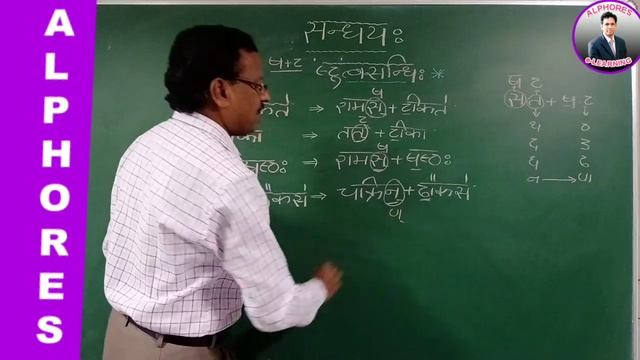 ALPHORES
ALPHORES
e-LEARNING
सन्धयः
ष्टुत्वसन्धिः *
⇒ रामस् + टीकते
ष
⇒ तत् + टीका
ट
⇒ रामस् + षष्ठः
ष
⇒ चक्रिन् + ढौकसे
ण्
ष ट
स त + ष ट
थ ठ
द ड
ध ढ
न → ण